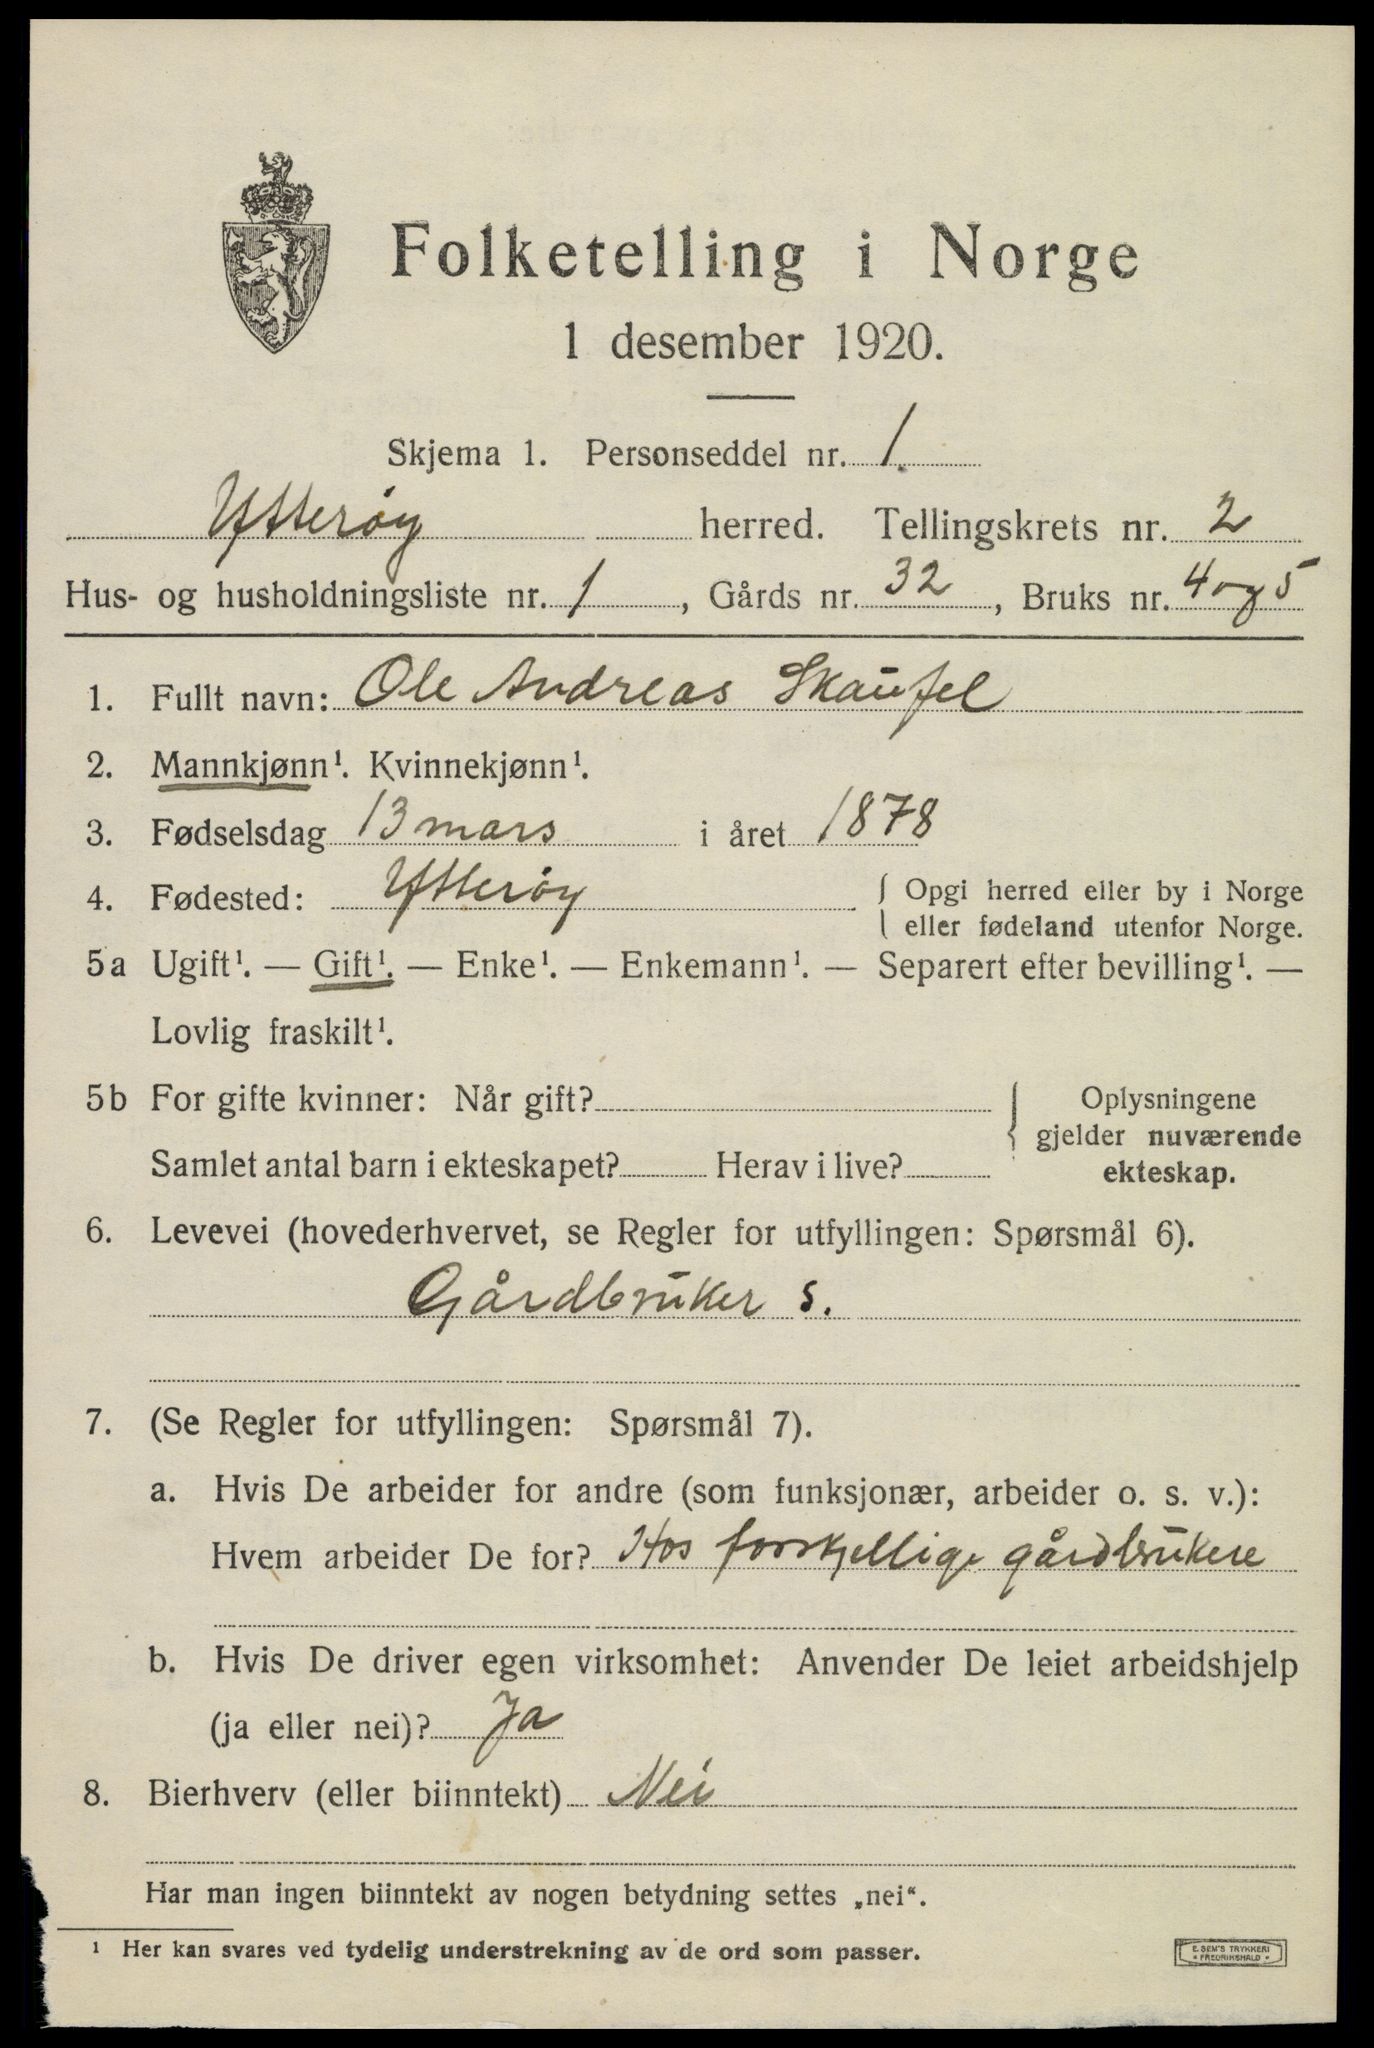 Folketelling i Norge
1 desember 1920.
Skjema 1. Personseddel nr. 1.
Ytterøy herred. Tellingskrets nr. 2
Hus- og husholdningsliste nr. 1, Gårds nr. 32, Bruks nr. 4 og 5
1. Fullt navn: Ole Andreas Skaufel
2. Mannkjønn¹. Kvinnekjønn¹.
3. Fødselsdag 13 mars i året 1878
4. Fødested: Ytterøy { Opgi herred eller by i Norge
eller fødeland utenfor Norge.
5a Ugift¹. — Gift¹. — Enke¹. — Enkemann¹. — Separert efter bevilling¹. —
Lovlig fraskilt¹.
5b For gifte kvinner: Når gift? { Oplysningene
gjelder nuværende
Samlet antal barn i ekteskapet? Herav i live? ekteskap.
6. Levevei (hovederhvervet, se Regler for utfyllingen: Spørsmål 6).
Gårdbruker s.
7. (Se Regler for utfyllingen: Spørsmål 7).
a. Hvis De arbeider for andre (som funksjonær, arbeider o. s. v.):
Hvem arbeider De for? Hos forskjellige gårdbrukere
b. Hvis De driver egen virksomhet: Anvender De leiet arbeidshjelp
(ja eller nei)? Ja
8. Bierhverv (eller biinntekt) Nei
Har man ingen biinntekt av nogen betydning settes „nei“.
¹ Her kan svares ved tydelig understrekning av de ord som passer.
E. SEM'S TRYKKERI
• FREDRIKSHALD •